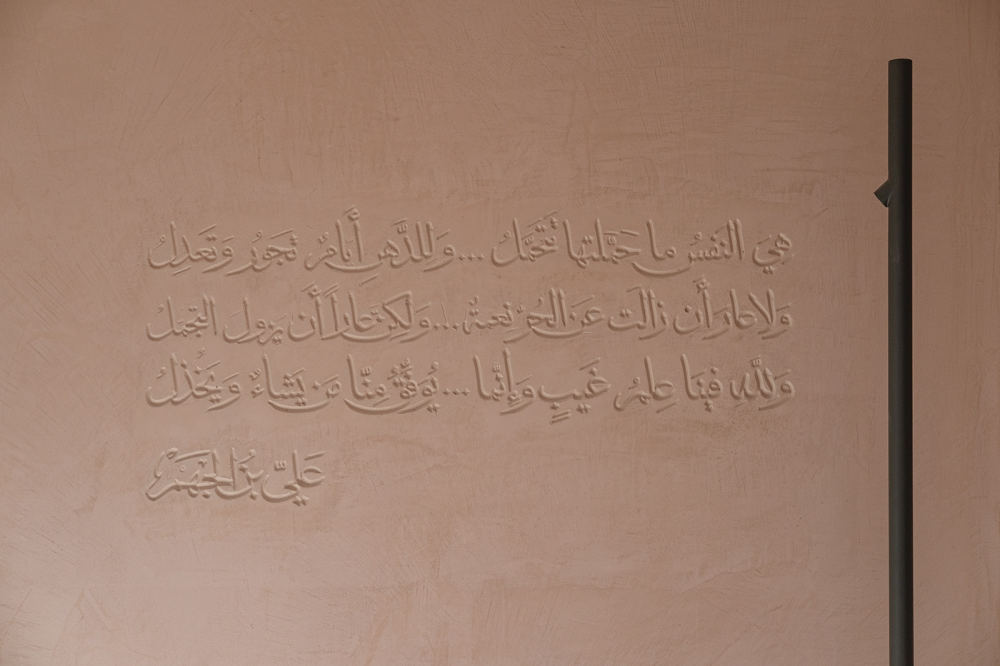 هِيَ النَفسُ ما حَمَّلتَها تَتَحَمَّلُ ... وَلِلدَّهرِ أَيّامٌ تَجورُ وَتَعدِلُ
وَلا عارَ أَن زالَت عَنِ الحُرِّ نِعمَةٌ ... وَلكِنَّ عاراً أَن يَزولَ التَجَمُّلُ
وَلِلَّهِ فينا عِلمُ غَيبٍ وَإِنَّما ... يُوَفِّقُ مِنّا مَن يَشاءُ وَيَخذُلُ
عَليّ بنُ الجَهم